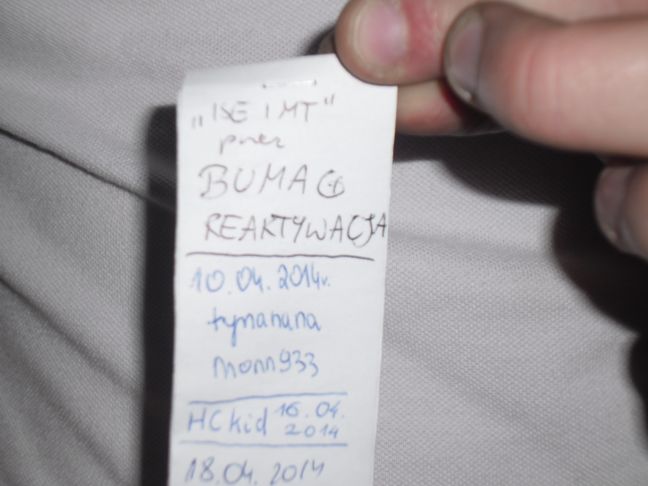 „ISE I MT"
przez
BUMA
REAKTYWACJA
10.04.2014r.
tymahuna
monn933
HC kid 16.04.
2014
18.04.2014